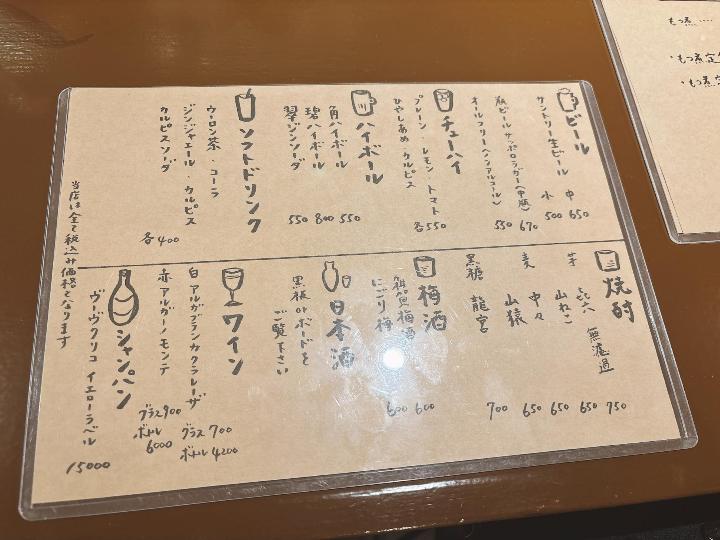 ビール
サントリー生ビール 中 650
小 500
瓶ビール サッポロラガー(中瓶) 670
オールフリー(ノンアルコール) 550
チューハイ
プレーン・レモン・トマト
ひやしあめ・カルピス 各550
ハイボール
角ハイボール 550
碧ハイボール 800
翠ジンソーダ 550
ソフトドリンク
ウーロン茶・コーラ
ジンジャエール・カルピス
カルピスソーダ 各400
焼酎
芋 㐂六 無濾過 750
山ねこ 650
麦 中々 650
山猿 650
黒糖 龍宮 700
梅酒
梅酒 600
にごり梅 600
日本酒
黒板orボードを
ご覧下さい
ワイン
白 アルガブランカクラレーザ
グラス 700
ボトル 4200
赤 アルガーノモンテ
グラス 900
ボトル 6000
シャンパン
ヴーヴクリコ イエローラベル 15000
当店は全て税込み価格となります
もつ煮 ....
・もつ煮定
・もつ煮